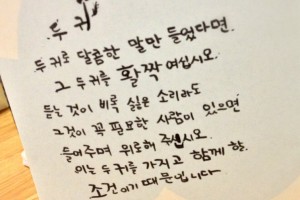 두 귀
두 귀로 달콤한 말만 들었다면
그 두 귀를 활짝 여십시오.
듣는 것이 비록 싫은 소리라도
그것이 꼭 필요한 사람이 있으면
들어주며 위로해 주십시오.
이는 두 귀를 가지고 함께 할
조건이기 때문입니다